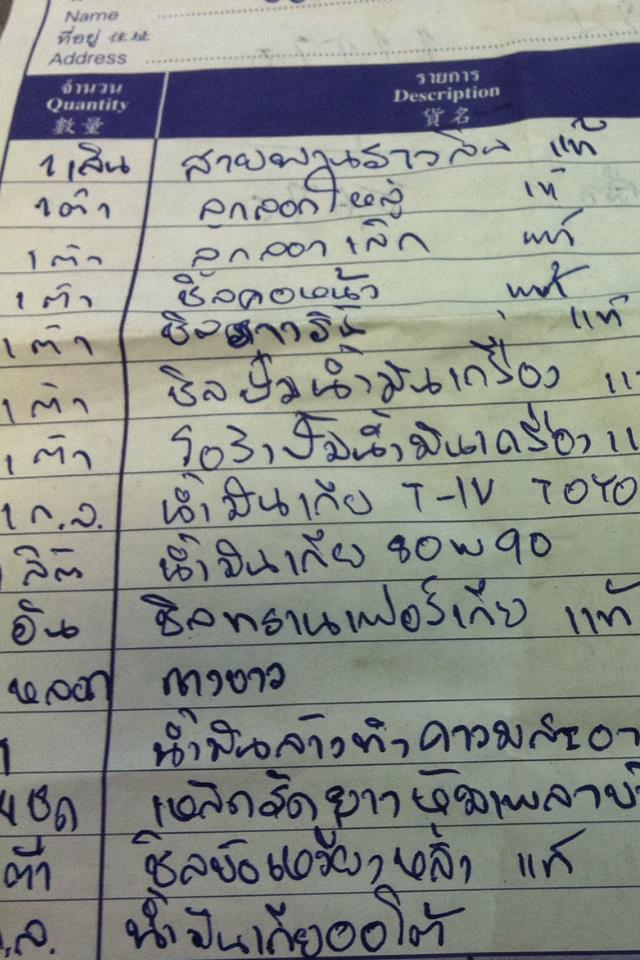 Name
ที่อยู่ 住址
Address
จำนวน รายการ
Quantity Description
數量 貨名
1 เส้น สายพานราวลิ้น แท้
1 ตัว ลูกลอกใหญ่ แท้
1 ตัว ลูกลอกเล็ก แท้
1 ตัว ซีลคอหน้า แท้
1 ตัว ซีล แท้
1 ตัว ซีลปั๊มน้ำมันเครื่อง
1 ตัว โอริงปั๊มน้ำมันเครื่อง
1 ก.ล. น้ำมันเกีย T-IV TOYO
ลิต น้ำมันเกีย 80W90
อัน ซีลทรานเฟอร์เกีย แท้
หลอด กาวยาว
1 น้ำมันล้างทำความสะอา
ชุด เหล็กรัดยางหุ้มเพลา
ตัว ซีลข้อเหวี่ยงหลัง แท้
ก.ล. น้ำมันเกียออโต้